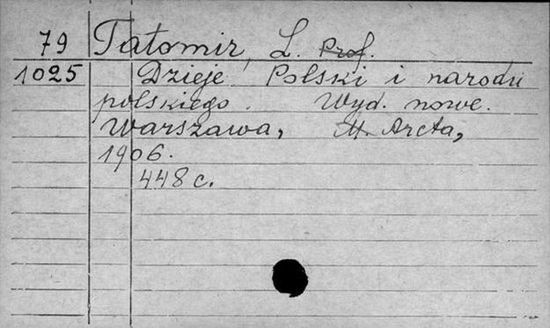 79 Tatomir, L. Prof.
1025 Dzieje Polski i narodu
polskiego. Wyd. nowe.
Warszawa, M. Arcta,
1906.
448 c.